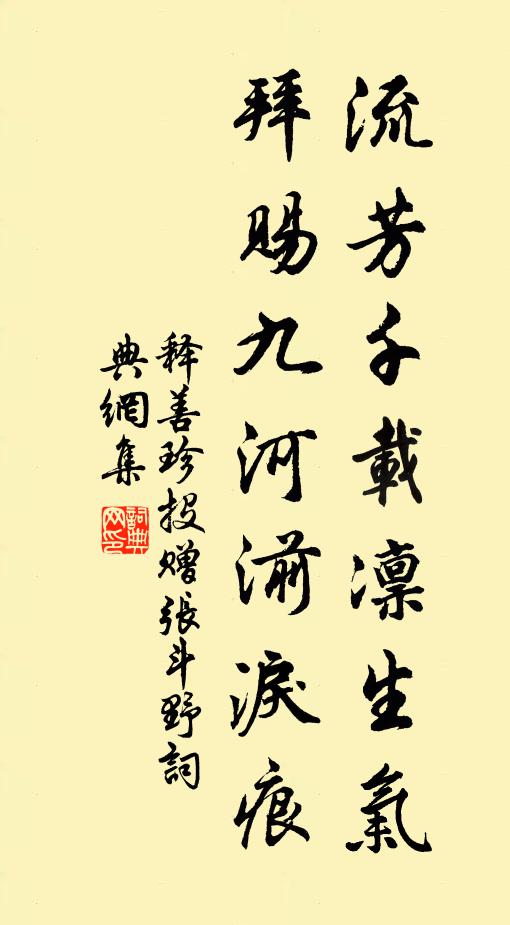 流芳千載凜生氣
拜賜九河湔淚痕
释善珍投赠張斗野詞
典網集
詞典网印